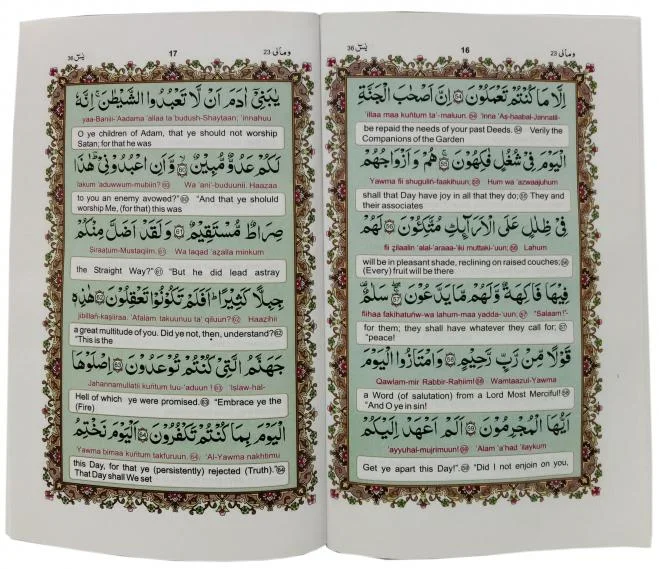 36 يٰسٓ
16
ومالی 23
اِلَّا مَا كُنْتُمْ تَعْمَلُوْنَ ﴿54﴾ اِنَّ اَصْحٰبَ الْجَنَّةِ
'illaa maa kuñtum ta'-maluun. 54 'Inna 'Aṣ-ḥaabal-Jannatil-
be repaid the needs of your past Deeds. 54 Verily the
Companions of the Garden
الْيَوْمَ فِيْ شُغُلٍ فٰكِهُوْنَ ﴿55﴾ هُمْ وَاَزْوَاجُهُمْ
Yawma fii shuguliñ-faakihuun; 55 Hum wa 'azwaajuhum
shall that Day have joy in all that they do; 55 They and
their associates
فِيْ ظِلٰلٍ عَلَى الْاَرَآئِكِ مُتَّكِئُوْنَ ﴿56﴾ لَهُمْ
fii zilaalin 'alal-'araaa-'iki muttaki-'uun; 56 Lahum
will be in pleasant shade, reclining on raised couches; 56
(Every) fruit will be there
فِيْهَا فَاكِهَةٌ وَّلَهُمْ مَّا يَدَّعُوْنَ ﴿57﴾ سَلٰمٌ
fiihaa fakihatuñw-wa lahum-maa yadda-'uun; 57 "Salaam!"-
for them; they shall have whatever they call for; 57
"peace!
قَوْلًا مِّنْ رَّبٍّ رَّحِيْمٍ ﴿58﴾ وَامْتَازُوا الْيَوْمَ
Qawlam-mir Rabbir-Raḥiim! 58 Wamtaazul-Yawma
a Word (of salutation) from a Lord Most Merciful! 58
"And O ye in sin!
اَيُّهَا الْمُجْرِمُوْنَ ﴿59﴾ اَلَمْ اَعْهَدْ اِلَيْكُمْ
'ayyuhal-mujrimuun! 59 'Alam 'a'had 'ilaykum
Get ye apart this Day!". 59 "Did I not enjoin on you,
36 يٰسٓ
17
ومالی 23
يٰبَنِيْٓ اٰدَمَ اَنْ لَّا تَعْبُدُوا الشَّيْطٰنَ ۚ اِنَّهٗ
yaa-Baniii-'Aadama 'allaa ta'budush-Shaytaan; 'innahuu
O ye children of Adam, that ye should not worship
Satan; for that he was
لَكُمْ عَدُوٌّ مُّبِيْنٌ ﴿60﴾ وَّاَنِ اعْبُدُوْنِيْ ؕ هٰذَا
lakum 'aduwwum-mubiin? 60 Wa 'ani'-buduunii. Haazaa
to you an enemy avowed?" 60 "And that ye sholuld
worship Me, (for that) this was
صِرَاطٌ مُّسْتَقِيْمٌ ﴿61﴾ وَلَقَدْ اَضَلَّ مِنْكُمْ
Siraaṭum-Mustaqiim. 61 Wa laqad 'aẓalla minkum
the Straight Way?" 61 "But he did lead astray
جِبِلًّا كَثِيْرًا ؕ اَفَلَمْ تَكُوْنُوْا تَعْقِلُوْنَ ﴿62﴾ هٰذِهٖ
jibillañ-kaṣiiraa. 'Afalam takuunuu ta'qiluun? 62 Haazihii
a great multitude of you. Did ye not, then, understand? 62
"This is the
جَهَنَّمُ الَّتِيْ كُنْتُمْ تُوْعَدُوْنَ ﴿63﴾ اِصْلَوْهَا
Jahannamullatii kuñtum tuu-'aduun! 63 'Iṣlaw-hal-
Hell of which ye were promised. 63 "Embrace ye the
(Fire)
الْيَوْمَ بِمَا كُنْتُمْ تَكْفُرُوْنَ ﴿64﴾ اَلْيَوْمَ نَخْتِمُ
Yawma bimaa kuñtum takfuruun. 64 'Al-Yawma nakhtimu
this Day, for that ye (persistently) rejected (Truth)." 64
That Day shall We set